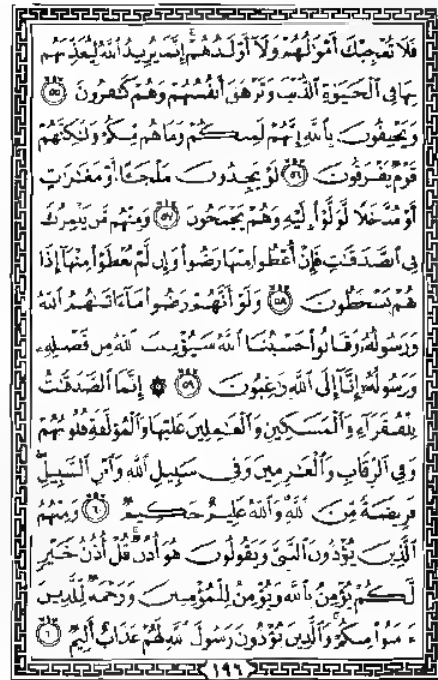 فَلَا تُعْجِبْكَ أَمْوَٰلُهُمْ وَلَآ أَوْلَٰدُهُمْ إِنَّمَا يُرِيدُ ٱللَّهُ لِيُعَذِّبَهُم
بِهَا فِى ٱلْحَيَوٰةِ ٱلدُّنْيَا وَتَزْهَقَ أَنفُسُهُمْ وَهُمْ كَٰفِرُونَ ٥٥
وَيَحْلِفُونَ بِٱللَّهِ إِنَّهُمْ لَمِنكُمْ وَمَا هُم مِّنكُمْ وَلَٰكِنَّهُمْ
قَوْمٌ يَفْرَقُونَ ٥٦ لَوْ يَجِدُونَ مَلْجَـًٔا أَوْ مَغَٰرَٰتٍ
أَوْ مُدَّخَلًا لَّوَلَّوْا۟ إِلَيْهِ وَهُمْ يَجْمَحُونَ ٥٧ وَمِنْهُم مَّن يَلْمِزُكَ
فِى ٱلصَّدَقَٰتِ فَإِنْ أُعْطُوا۟ مِنْهَا رَضُوا۟ وَإِن لَّمْ يُعْطَوْا۟ مِنْهَآ إِذَا
هُمْ يَسْخَطُونَ ٥٨ وَلَوْ أَنَّهُمْ رَضُوا۟ مَآ ءَاتَىٰهُمُ ٱللَّهُ
وَرَسُولُهُۥ وَقَالُوا۟ حَسْبُنَا ٱللَّهُ سَيُؤْتِينَا ٱللَّهُ مِن فَضْلِهِۦ
وَرَسُولُهُۥٓ إِنَّآ إِلَى ٱللَّهِ رَٰغِبُونَ ٥٩ ۞ إِنَّمَا ٱلصَّدَقَٰتُ
لِلْفُقَرَآءِ وَٱلْمَسَٰكِينِ وَٱلْعَٰمِلِينَ عَلَيْهَا وَٱلْمُؤَلَّفَةِ قُلُوبُهُمْ
وَفِى ٱلرِّقَابِ وَٱلْغَٰرِمِينَ وَفِى سَبِيلِ ٱللَّهِ وَٱبْنِ ٱلسَّبِيلِ
فَرِيضَةً مِّنَ ٱللَّهِ وَٱللَّهُ عَلِيمٌ حَكِيمٌ ٦٠ وَمِنْهُمُ
ٱلَّذِينَ يُؤْذُونَ ٱلنَّبِىَّ وَيَقُولُونَ هُوَ أُذُنٌ قُلْ أُذُنُ خَيْرٍ
لَّكُمْ يُؤْمِنُ بِٱللَّهِ وَيُؤْمِنُ لِلْمُؤْمِنِينَ وَرَحْمَةٌ لِّلَّذِينَ
ءَامَنُوا۟ مِنكُمْ وَٱلَّذِينَ يُؤْذُونَ رَسُولَ ٱللَّهِ لَهُمْ عَذَابٌ أَلِيمٌ ٦١
١٩٦